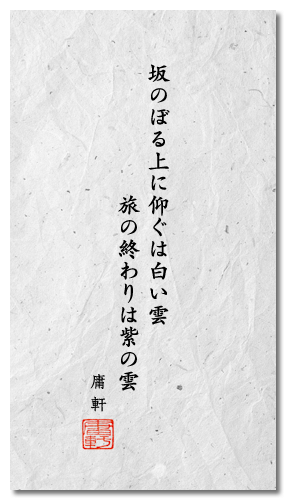 坂のぼる上に仰ぐは白い雲
旅の終わりは紫の雲
庸軒
庸軒